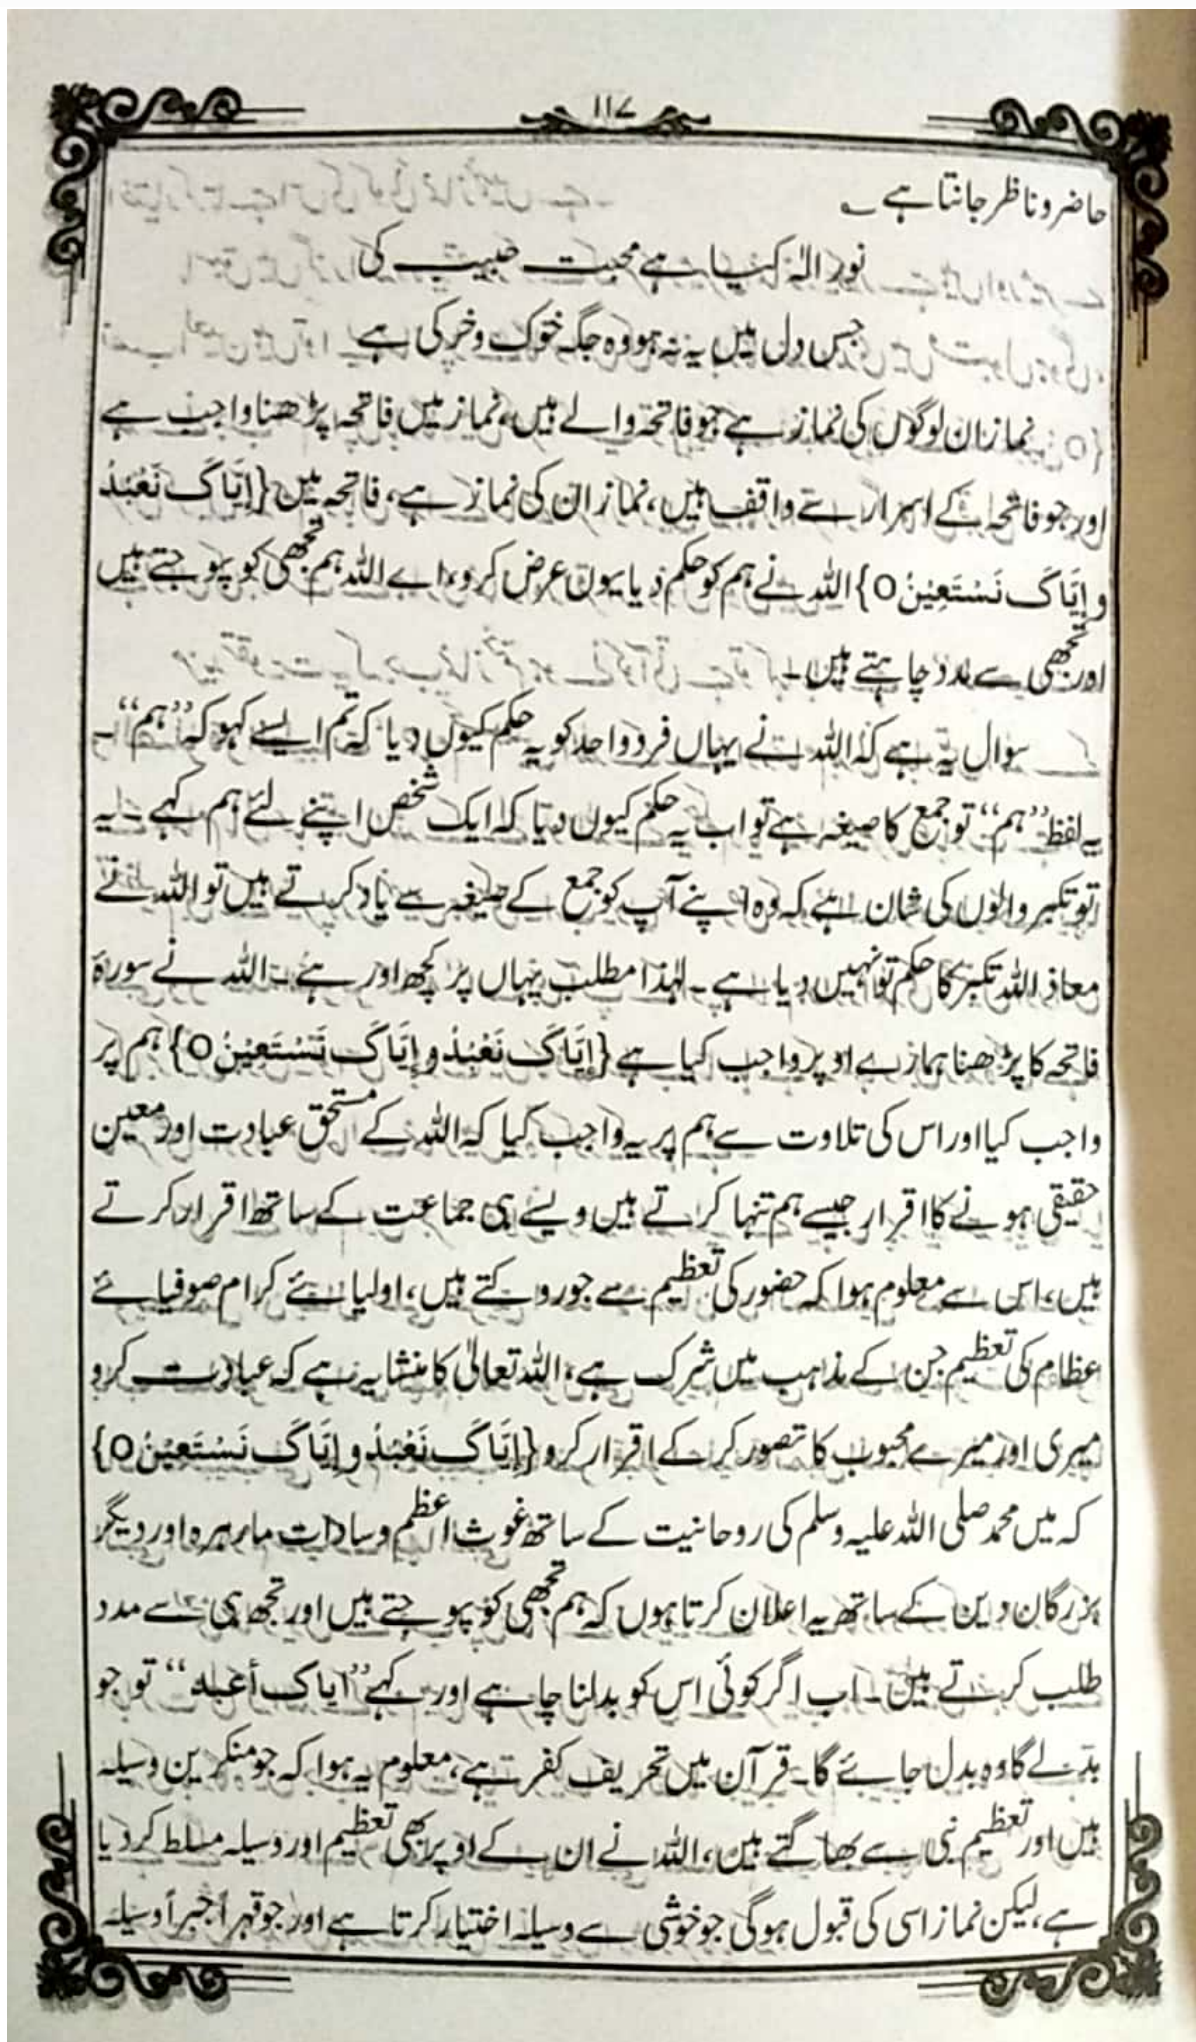 ۱۱۷
حاضر و ناظر جانتا ہے ؎
نور الہٰ کیا ہے محبت حبیب کی
جس دل میں یہ نہ ہو وہ جگہ خوک و خر کی ہے
نماز ان لوگوں کی نماز ہے جو فاتحہ والے ہیں، نماز میں فاتحہ پڑھنا واجب ہے
اور جو فاتحہ کے اسرار سے واقف ہیں، نماز ان کی نماز ہے، فاتحہ میں {إِيَّاكَ نَعْبُدُ
و إِيَّاكَ نَسْتَعِيْنُ O} اللہ نے ہم کو حکم دیا یوں عرض کرو، اے اللہ ہم تجھی کو پوجتے ہیں
اور تجھی سے مدد چاہتے ہیں۔
سوال یہ ہے کہ اللہ نے یہاں فرد واحد کو یہ حکم کیوں دیا کہ تم ایسے کہو کہ ’’ہم‘‘۔
یہ لفظ ’’ہم‘‘ تو جمع کا صیغہ ہے تو اب یہ حکم کیوں دیا کہ ایک شخص اپنے لئے ہم کہے۔ یہ
تو تکبر والوں کی شان ہے کہ وہ اپنے آپ کو جمع کے صیغہ سے یاد کرتے ہیں تو اللہ نے
معاذ اللہ تکبر کا حکم تو نہیں دیا ہے۔ لہٰذا مطلب یہاں پر کچھ اور ہے۔ اللہ نے سورۂ
فاتحہ کا پڑھنا ہمارے اوپر واجب کیا ہے {إِيَّاكَ نَعْبُدُ و إِيَّاكَ نَسْتَعِيْنُ O} ہم پر
واجب کیا اور اس کی تلاوت سے ہم پر یہ واجب کیا کہ اللہ کے مستحق عبادت اور معین
حقیقی ہونے کا اقرار جیسے ہم تنہا کرتے ہیں ویسے ہی جماعت کے ساتھ اقرار کرتے
ہیں، اس سے معلوم ہوا کہ حضور کی تعظیم سے جو روکتے ہیں، اولیائے کرام صوفیائے
عظام کی تعظیم جن کے مذاہب میں شرک ہے، اللہ تعالیٰ کا منشا یہ ہے کہ عبادت کرو
میری اور میرے محبوب کا تصور کر کے اقرار کرو {إِيَّاكَ نَعْبُدُ و إِيَّاكَ نَسْتَعِيْنُ O}
کہ میں محمد صلی اللہ علیہ وسلم کی روحانیت کے ساتھ غوث اعظم و سادات مارہرہ اور دیگر
بزرگان دین کے ساتھ یہ اعلان کرتا ہوں کہ ہم تجھی کو پوجتے ہیں اور تجھ ہی سے مدد
طلب کرتے ہیں۔ اب اگر کوئی اس کو بدلنا چاہے اور کہے ’’ایاک أعبد‘‘ تو جو
بدلے گا وہ بدل جائے گا۔ قرآن میں تحریف کفر ہے، معلوم یہ ہوا کہ جو منکرین وسیلہ
ہیں اور تعظیم نبی سے بھاگتے ہیں، اللہ نے ان کے اوپر بھی تعظیم اور وسیلہ مسلط کر دیا
ہے، لیکن نماز اسی کی قبول ہو گی جو خوشی سے وسیلہ اختیار کرتا ہے اور جو قہراً جبراً وسیلہ